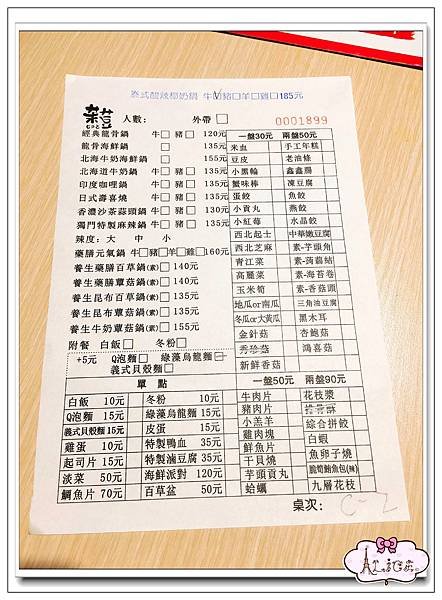 泰式酸辣椰奶鍋 牛□豬□羊□雞□185元
菜荳
人數: 外帶□ 0001899
經典龍骨鍋 牛□ 豬□ 120元
龍骨海鮮鍋 □ 135元
北海牛奶海鮮鍋 □ 155元
北海道牛奶鍋 牛□ 豬□ 135元
印度咖哩鍋 牛□ 豬□ 135元
日式壽喜燒 牛□ 豬□ 135元
香濃沙茶蒜頭鍋 牛□ 豬□ 130元
獨門特製麻辣鍋 牛□ 豬□ 135元
辣度: 大 中 小
藥膳元氣鍋 牛□豬□羊□雞□160元
養生藥膳百草鍋(素)□ 140元
養生藥膳蕈菇鍋(素)□ 140元
養生昆布百草鍋(素)□ 135元
養生昆布蕈菇鍋(素)□ 135元
養生牛奶蕈菇鍋(素)□ 155元
附餐 白飯□ 冬粉□
+5元 Q泡麵□ 綠藻烏龍麵□
義式貝殼麵□
一盤30元 兩盤50元
米血 手工年糕
豆皮 老油條
小黑輪 鑫鑫腸
蟹味棒 凍豆腐
蛋餃 魚餃
小貢丸 燕餃
小紅莓 水晶餃
西北起士 中華嫩豆腐
西北芝麻 素-芋頭角
青江菜 素-蒟蒻結
高麗菜 素-海苔卷
玉米筍 素-香菇頭
地瓜or南瓜 三角油豆腐
冬瓜or大黃瓜 黑木耳
金針菇 杏鮑菇
秀珍菇 鴻喜菇
新鮮香菇
單點
白飯 10元 冬粉 10元
Q泡麵 15元 綠藻烏龍麵 15元
義式貝殼麵 15元 皮蛋 15元
雞蛋 10元 特製鴨血 35元
起司片 15元 特製滷豆腐 35元
淡菜 50元 海鮮派對 120元
鯛魚片 70元 百草盆 50元
一盤50元 兩盤90元
牛肉片 花枝漿
豬肉片
小羔羊 綜合拼餃
雞肉塊 白蝦
鮮魚片 魚卵子燒
干貝燒 脆筍鮪魚包(辣)
芋頭貢丸 九層花枝
蛤蠣
桌次: C-2
ALice